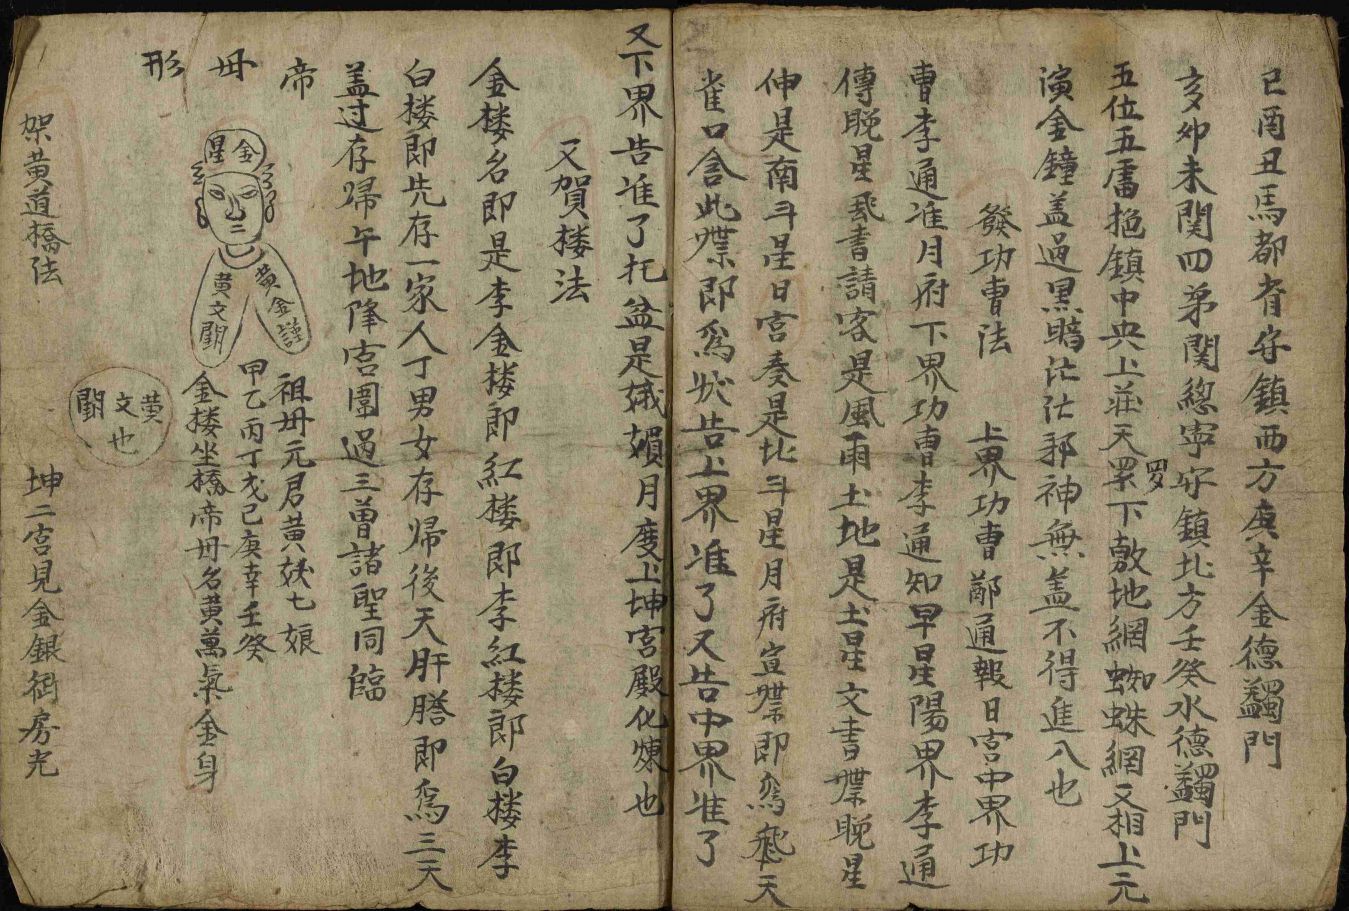 巳酉丑馬都督守鎮西方庚辛金德蠲門
亥夘未関四苐関緫寜守鎮北方壬癸水德蠲門
五位五雷摠鎮中央上莊天罗下敷地網蜘蛛網又相上元
演金鐘盖過黒暗茫茫邪神無盖不得進入也
發功曹法 上界功曹鄗通報日宫中界功
曹李通准月府下界功曹李通知早星陽界李通
傳睌星發書請客是風雨土地是土星文書牒睌星
伸是南斗星日宫奏是北斗星月府宣牒即為飛天
雀口含此牒即為状告上界准了又告中界准了
又下界告准了托盆是娥媍月度上坤宫殿化煉也
又賀楼法
金楼名即是李金楼郎紅楼郎李紅楼郎白楼李
白楼即先存一家人丁男女存帰後天肝膽即為三天
盖过存帰午地降宫圍過三曽諸聖同臨
帝母形
金星
黄金謹
黄文䦧
祖母元君黄姎七娘
甲乙丙丁戊己庚辛壬癸
金楼坐橋帝母名黄萬氣金身
黄文䦧也
架黄道橋法
坤二宫見金銀街房光